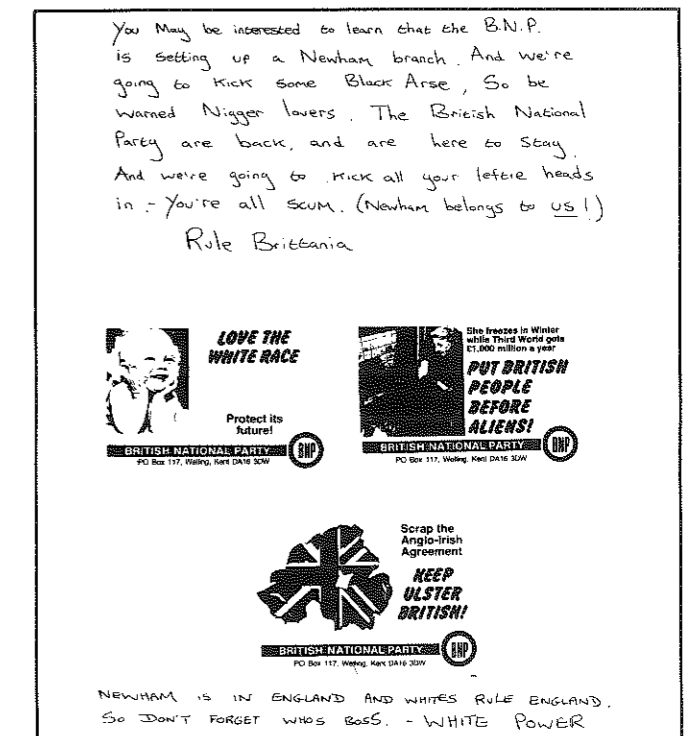 You May be interested to learn that the B.N.P.
is setting up a Newham branch. And we're
going to Kick some Black Arse, So be
warned Nigger lovers. The British National
Party are back, and are here to Stay.
And we're going to Kick all your leftie heads
in - You're all SCUM. (Newham belongs to US!)
Rule Brittania
LOVE THE
WHITE RACE
Protect its
future!
BRITISH NATIONAL PARTY
BNP
PO Box 117, Welling, Kent DA16 3DW
She freezes in Winter
while Third World gets
£1,000 million a year
PUT BRITISH
PEOPLE
BEFORE
ALIENS!
BRITISH NATIONAL PARTY
BNP
PO Box 117, Welling, Kent DA16 3DW
Scrap the
Anglo-Irish
Agreement
KEEP
ULSTER
BRITISH!
BRITISH NATIONAL PARTY
BNP
PO Box 117, Welling, Kent DA16 3DW
NEWHAM IS IN ENGLAND AND WHITES RULE ENGLAND.
SO DON'T FORGET WHOS BOSS. - WHITE POWER